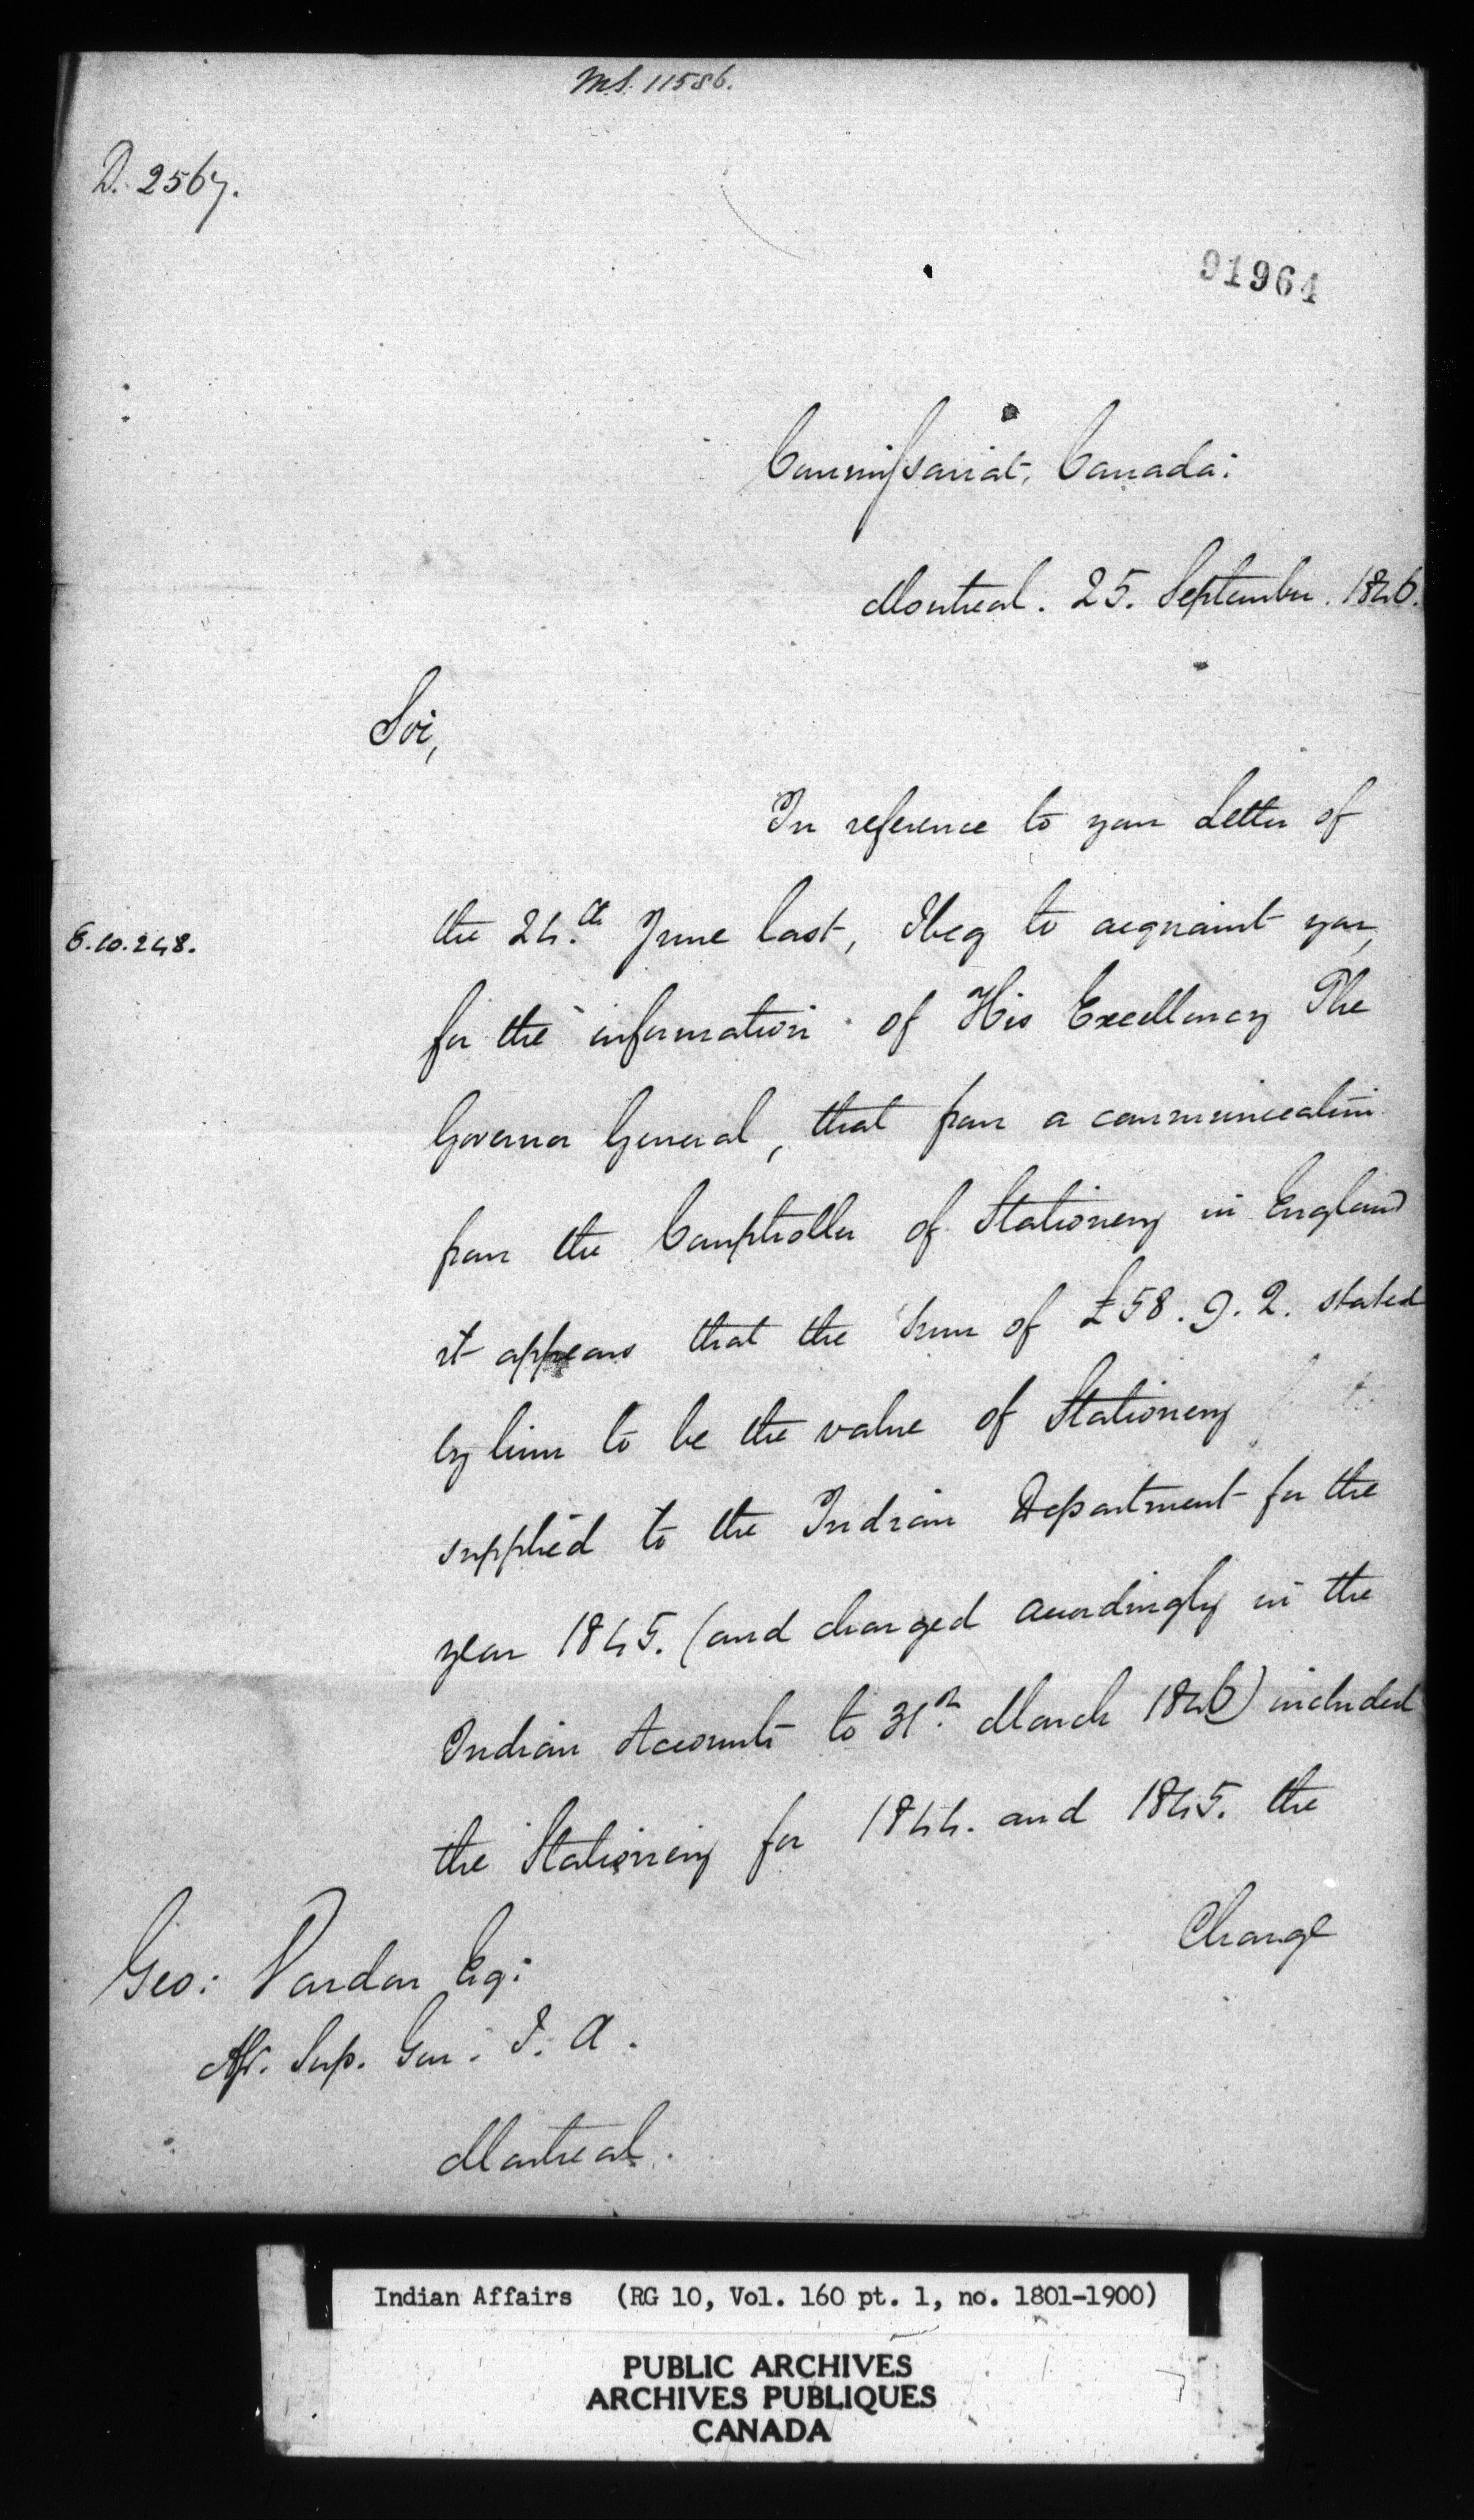 MS. 11586.
D. 2567.
91964
Commissariat, Canada:
Montreal. 25. September. 1846.
Sir,
In reference to your Letter of
E.10.248.
the 24.th June last, I beg to acquaint you,
for the information of His Excellency The
Governor General, that from a communication
from the Comptroller of Stationery in England
it appears that the Sum of £58.9.2. stated
by him to be the value of Stationery
supplied to the Indian Department for the
year 1845. (and charged accordingly in the
Indian Accounts to 31.st March 1846) included
the Stationery for 1844. and 1845. the
Charge
Geo: Vardon Esq:
Sup. Gen. I. A.
Montreal.
Indian Affairs (RG 10, Vol. 160 pt. 1, no. 1801-1900)
PUBLIC ARCHIVES
ARCHIVES PUBLIQUES
CANADA